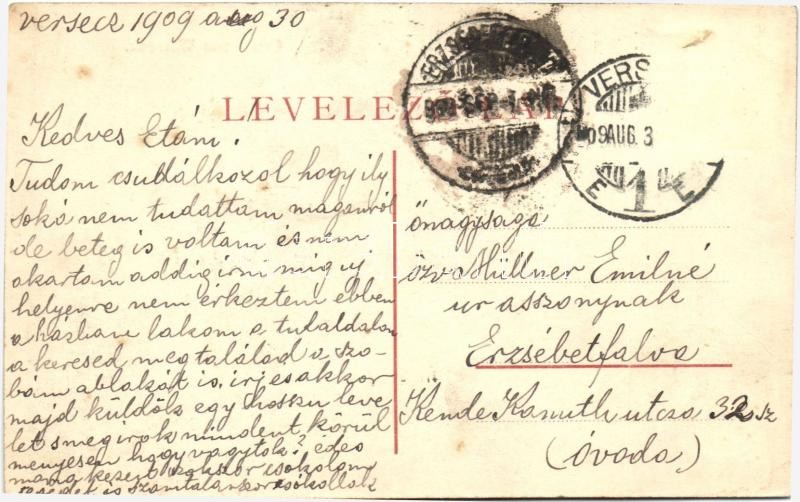 versecz 1909 aug 30
LEVELEZŐ-LAP
Kedves Etám!
Tudom csudálkozol hogy ily
soká nem tudattam magamról
de beteg is voltam és nem
akartam addig irni mig uj
helyemre nem érkeztem ebben
a házban lakom a tulaldalon
a keresed megtalálod a szo-
bám ablakát is, irj es akkor
majd küldök egy hosku leve
let s megirok mindent körül
menyesen hogy vagytok? édes
mama kezeit csokolom
is számtalanszor csókollak
VERS
09 AUG. 3
1
E E
önagysága
özv Müllner Emilné
ur asszonynak
Erzsébetfalva
Kende Kanuth utcza 32 sz
(óvoda)